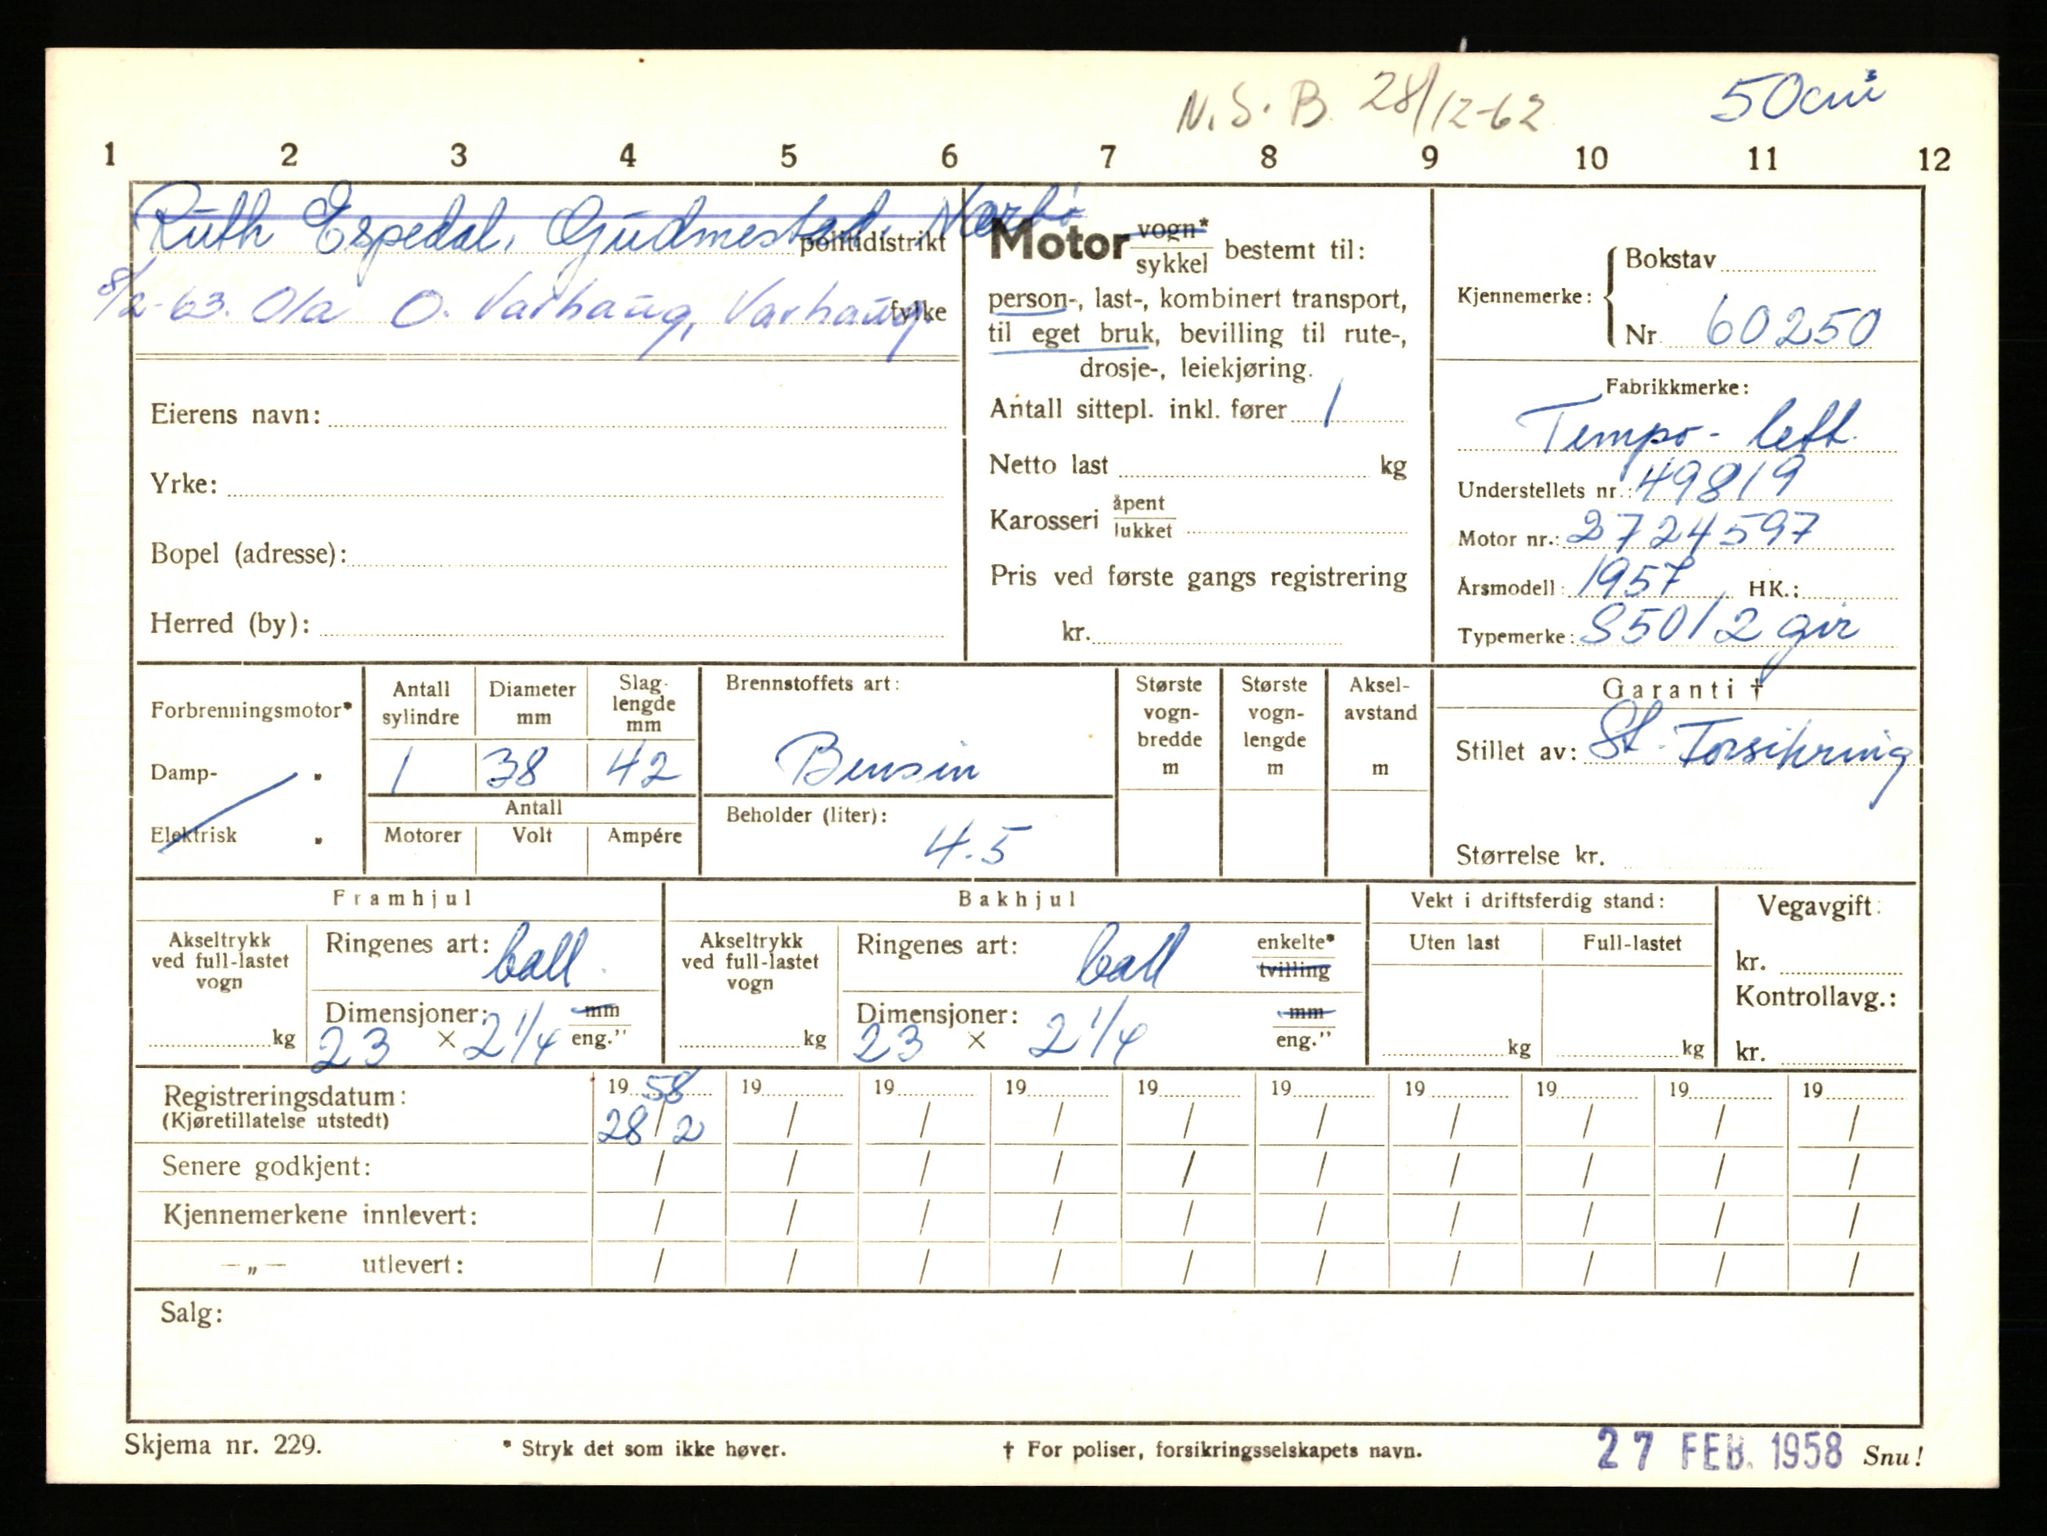 N. S. B. 28/12-62
50cm³
1 2 3 4 5 6 7 8 9 10 11 12
Ruth Espedal, Gudmestad, Nærbø
politidistrikt
8/2-63. Ola O. Varhaug, Varhaug.
fylke
Eierens navn:
Yrke:
Bopel (adresse):
Herred (by):
Motor vogn* sykkel bestemt til:
person-, last-, kombinert transport,
til eget bruk, bevilling til rute-,
drosje-, leiekjøring.
Antall sittepl. inkl. fører 1
Netto last kg
Karosseri åpent lukket
Pris ved første gangs registrering
kr.
Kjennemerke: Bokstav
Nr. 60250
Fabrikkmerke:
Tempo- lett.
Understellets nr.: 49819
Motor nr.: 2724597
Årsmodell: 1957 HK.:
Typemerke: S50/2 gir
Forbrenningsmotor*
Damp- "
Elektrisk "
Antall sylindre
Diameter mm
Slag-lengde mm
1 38 42
Antall
Motorer Volt Ampére
Brennstoffets art:
Bensin
Beholder (liter):
4.5
Største vogn-bredde m
Største vogn-lengde m
Aksel-avstand m
Garanti †
Stillet av: St. Forsikring
Størrelse kr.
Framhjul
Akseltrykk ved full-lastet vogn
kg
Ringenes art: ball.
Dimensjoner: mm
23 × 2 1/4 eng."
Bakhjul
Akseltrykk ved full-lastet vogn
kg
Ringenes art: ball enkelte* tvilling
Dimensjoner: mm
23 × 2 1/4 eng."
Vekt i driftsferdig stand:
Uten last Full-lastet
kg kg
Vegavgift:
kr.
Kontrollavg.:
kr.
Registreringsdatum: 19 58 19 19 19 19 19 19 19 19 19
(Kjøretillatelse utstedt) 28/2 / / / / / / / / /
Senere godkjent: / / / / / / / / / /
Kjennemerkene innlevert: / / / / / / / / / /
—„— utlevert: / / / / / / / / / /
Salg:
Skjema nr. 229.
* Stryk det som ikke høver.
† For poliser, forsikringsselskapets navn.
27 FEB. 1958
Snu!